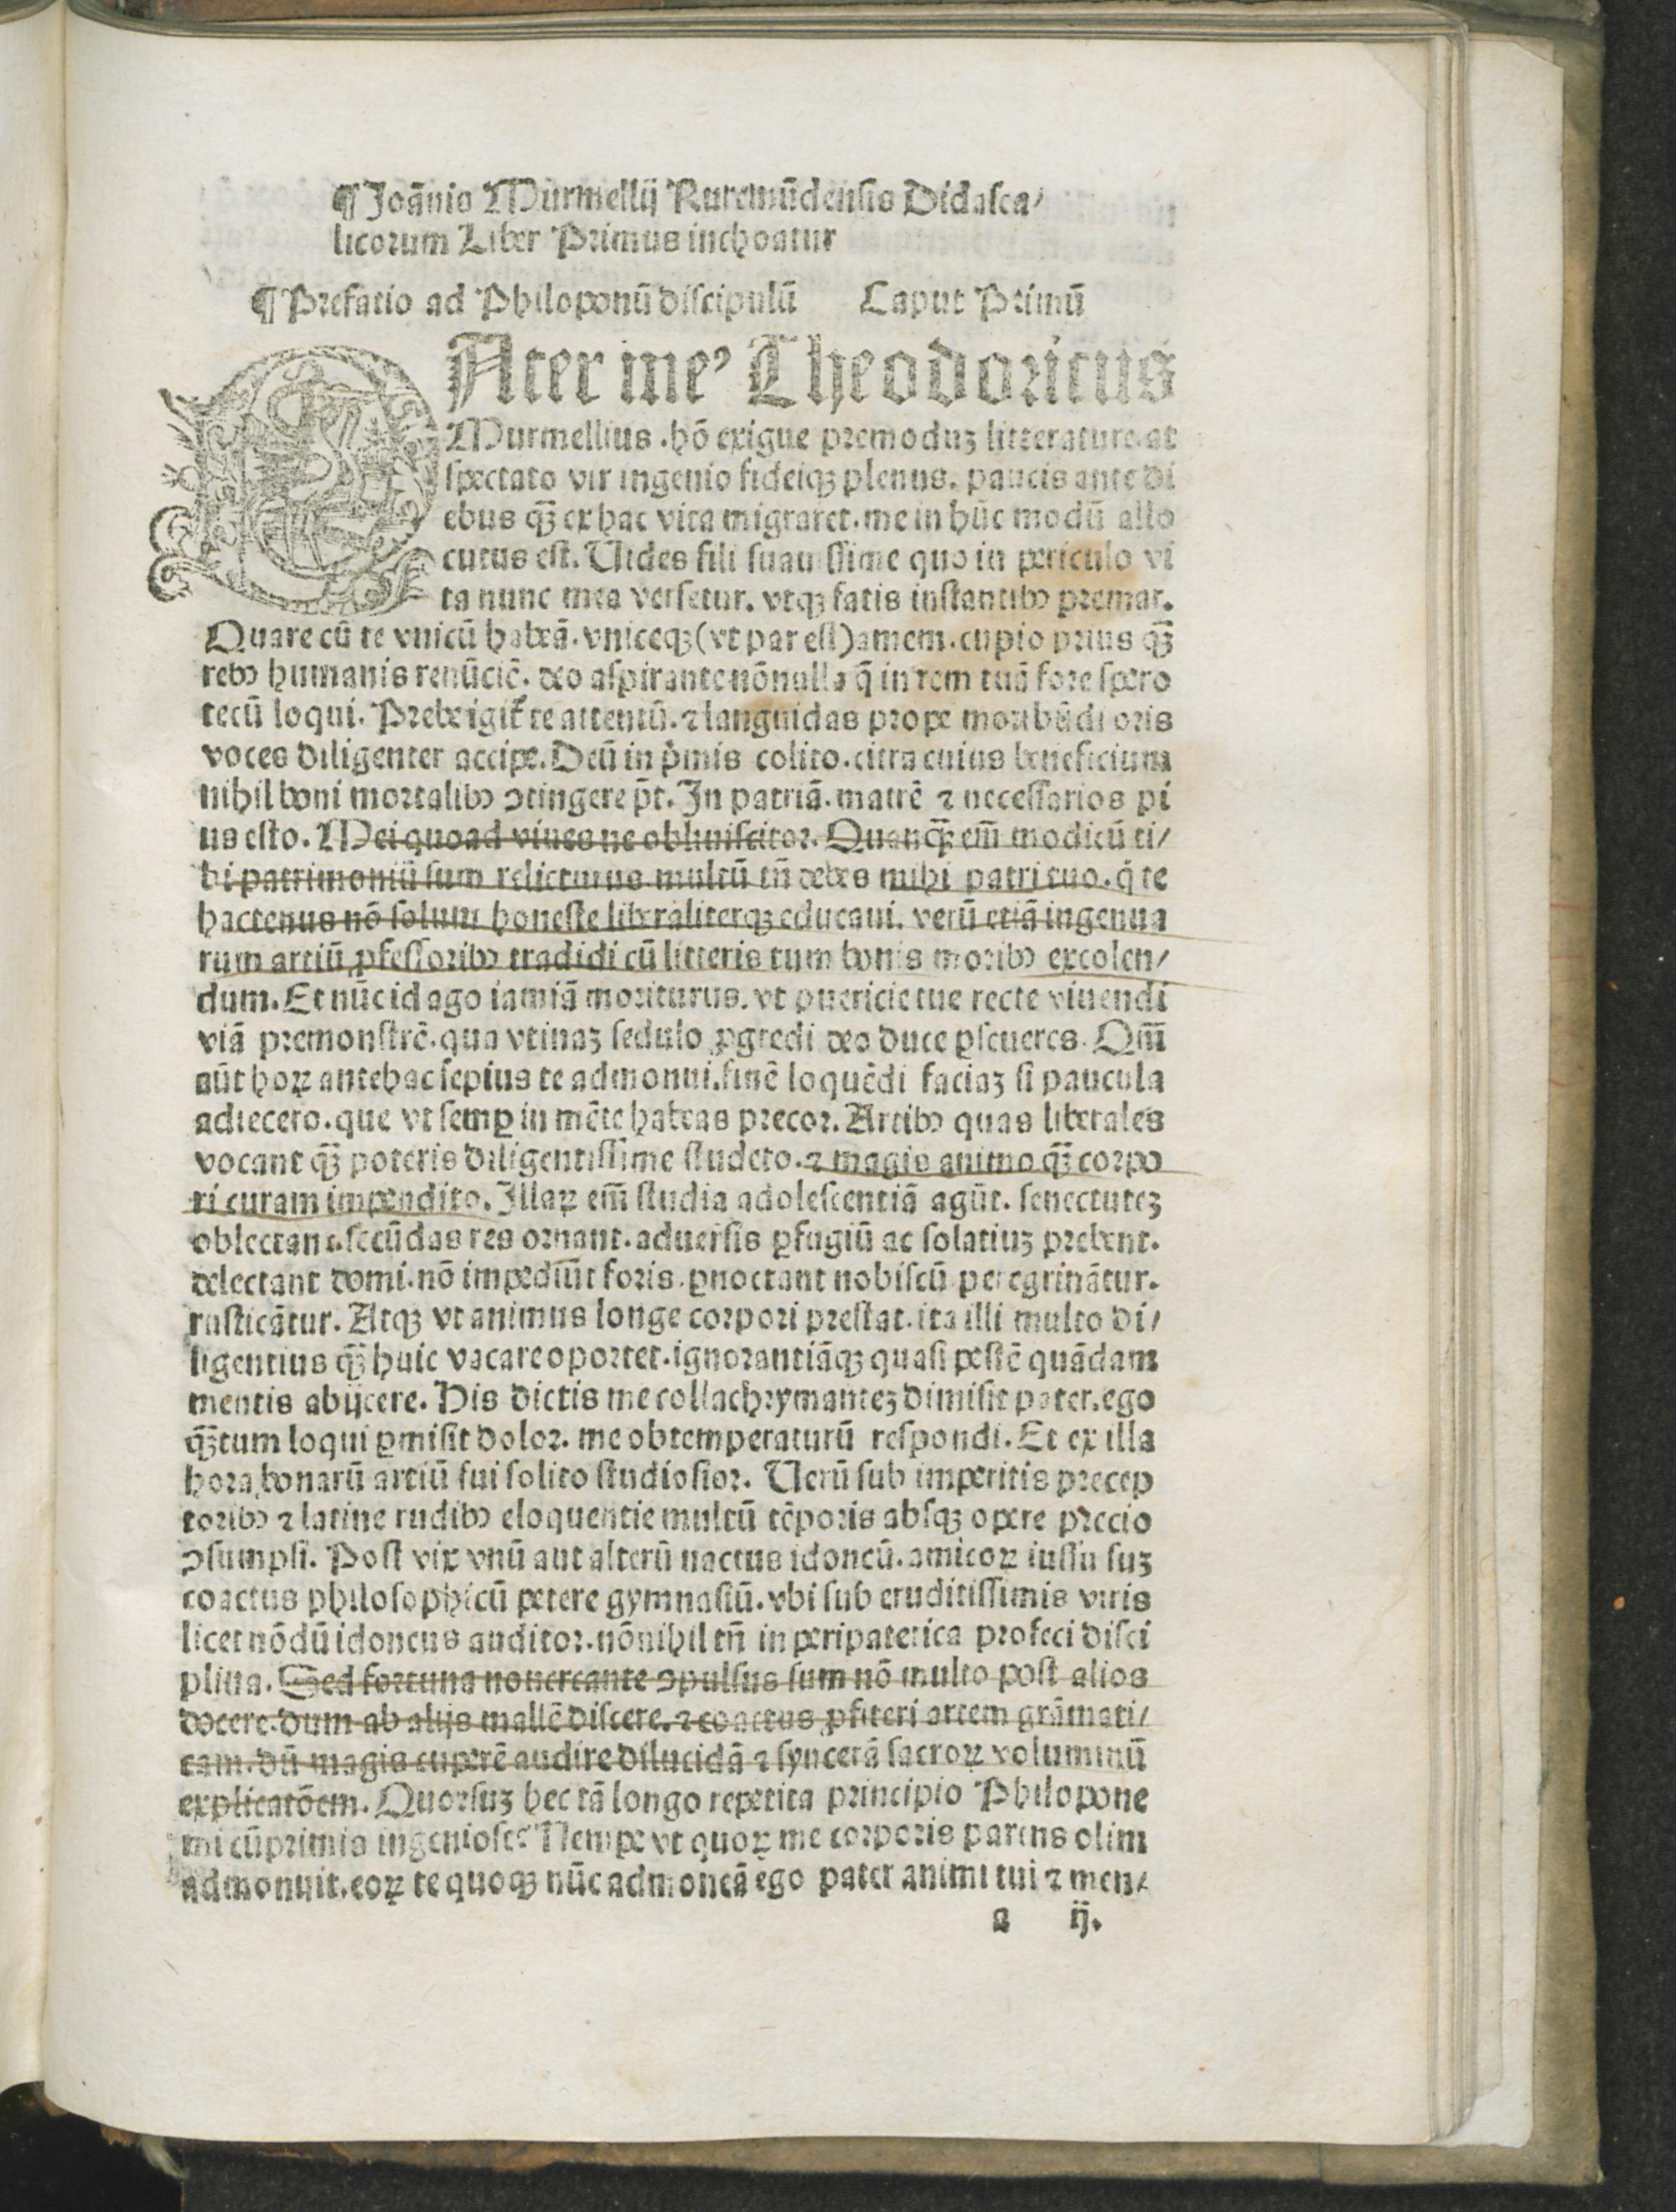 ¶ Joãnis Murmellij Ruremũdensis Didasca/
licorum Liber Primus inchoatur
¶ Prefatio ad Philoponũ discipulũ Caput Primũ
PAter meꝰ Theodoricus
Murmellius .hõ exigue premoduȝ litterature.at
spectato vir ingenio fideiqꝫ plenus. paucis ante di
ebus qꝫ̃ ex hac vita migraret.me in hũc modũ allo
cutus est. Uides fili suauissime quo in periculo vi
ta nunc mea versetur. vtqꝫ fatis instantibꝰ premar.
Quare cũ te vnicũ habeã.vniceqꝫ(vt par est)amem.cupio prius qꝫ̃
rebꝰ humanis renũciẽ. deo aspirante nõnulla q̃ in rem tuã fore spero
tecũ loqui. Prebe igit᷑ te attentũ.⁊ languidas prope moribũdi oris
voces diligenter accipe. Deũ in p̃mis colito.citra cuius beneficium
nihil boni mortalibꝰ ↄtingere põt. In patriã.matrẽ ⁊ necessarios pi
us esto. Mei quoad viues ne obliuiscitor. Quanqꝫ̃ em̃ modicũ ti/
bi patrimoniũ sum relicturus multũ tñ debes mihi patri tuo.q̇ te
hactenus nõ solum honeste liberaliterqꝫ educaui. verũ etiã ingenua
rum artiũ ꝓfessoribꝰ tradidi cũ litteris tum bonis moribꝰ excolen/
dum. Et nũc id ago iamiã moriturus. vt puericie tue recte viuendi
viã premonstrẽ.qua vtinaȝ sedulo ꝓgredi deo duce ꝑseueres. Qm̃
aũt hoꝝ antehac sepius te admonui.finẽ loquẽdi faciaȝ si paucula
adiecero.que vt semꝑ in mẽte habeas precor. Artibꝰ quas liberales
vocant qꝫ̃ poteris diligentissime studeto.⁊ magis animo qꝫ̃ corpo
ri curam impendito. Illaꝝ em̃ studia adolescentiã agũt. senectuteȝ
oblectant.secũdas res ornant.aduersis ꝑfugiũ ac solatiuȝ prebent.
delectant domi.nõ impediũt foris.ꝑnoctant nobiscũ peregrinãtur.
rusticãtur. Atqꝫ vt animus longe corpori prestat.ita illi multo di/
ligentius qꝫ̃ huic vacare oportet.ignorantiãqꝫ quasi pestẽ quãdam
mentis abijcere. His dictis me collachrymanteȝ dimisit pater.ego
qꝫ̃tum loqui ꝑmisit dolor. me obtemperaturũ respondi. Et ex illa
hora bonarũ artiũ fui solito studiosior. Uerũ sub imperitis precep
toribꝰ ⁊ latine rudibꝰ eloquentie multũ tẽporis absqꝫ opere precio
ↄsumpsi. Post vix vnũ aut alterũ nactus idoneũ.amicoꝝ iussu suȝ
coactus philosophicũ petere gymnasiũ.vbi sub eruditissimis viris
licet nõdũ idoneus auditor.nõnihil tñ in peripatetica profeci disci
plina. Sed fortuna nouercante ↄpulsus sum nõ multo post alios
docere.dum ab alijs mallẽ discere.⁊ coactus ꝓfiteri artem grãmati/
cam.dũ magis cuperẽ audire dilucidã ⁊ syncerã sacroꝝ voluminũ
explicatõem. Quorsuȝ hec tã longo repetita principio Philopone
mi cũprimis ingeniose? Nempe vt quoꝝ me corporis parens olim
admonuit.eoꝝ te quoqꝫ nũc admoneã ego pater animi tui ⁊ men/
a ij.